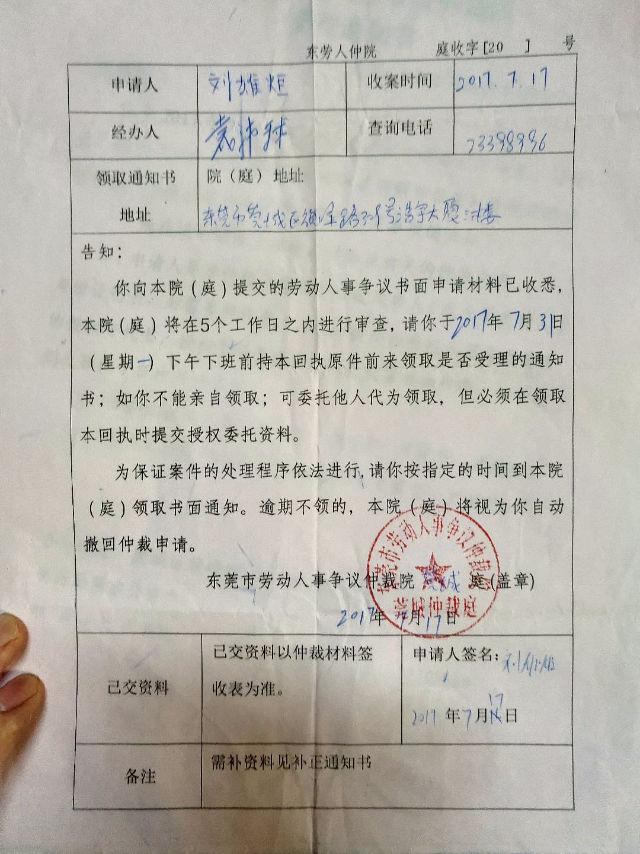 东劳人仲院 庭收字[20 ] 号
申请人 刘雄炬 收案时间 2017.7.17
经办人 查询电话 23398996
领取通知书 院（庭）地址
地址 东莞市莞城区 号浩宇大厦
告知：
你向本院（庭）提交的劳动人事争议书面申请材料已收悉，
本院（庭）将在5个工作日之内进行审查，请你于2017年7月31日
（星期一）下午下班前持本回执原件前来领取是否受理的通知
书；如你不能亲自领取；可委托他人代为领取，但必须在领取
本回执时提交授权委托资料。
为保证案件的处理程序依法进行，请你按指定的时间到本院
（庭）领取书面通知。逾期不领的，本院（庭）将视为你自动
撤回仲裁申请。
东莞市劳动人事争议仲裁院 莞城 庭(盖章)
东莞市劳动人事争议仲裁院
莞城仲裁庭
2017年7月17日
已交资料 已交资料以仲裁材料签
收表为准。
申请人签名：刘雄炬
2017年7月17日
备注 需补资料见补正通知书